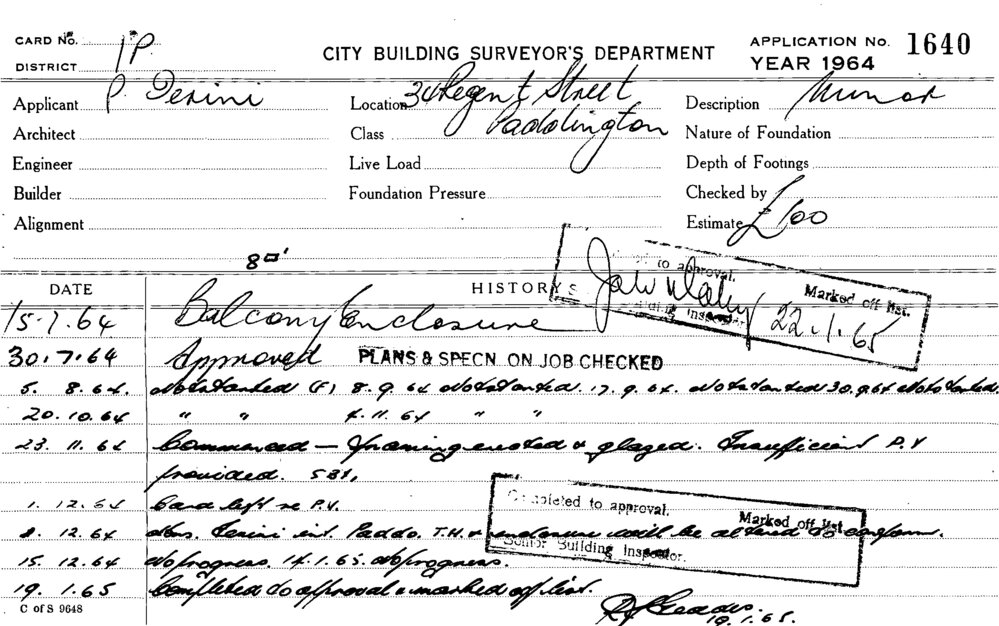 CARD No. 1P
DISTRICT
CITY BUILDING SURVEYOR'S DEPARTMENT
APPLICATION No. 1640
YEAR 1964
Applicant P. Terini
Location 34 Regent Street
Paddington
Description Minor
Architect
Class
Nature of Foundation
Engineer
Live Load
Depth of Footings
Builder
Foundation Pressure
Checked by
Alignment
Estimate £100
80'
to approval.
Marked off list.
22.1.65
DATE
HISTORY
15.7.64 Balcony Enclosure
30.7.64 Approved PLANS & SPECN. ON JOB CHECKED
5. 8.64. Not started (F) 8.9.64 Not started. 17.9.64. Not started 30.9.64 Not started.
20.10.64 " " 4.11.64 " "
23.11.64 Commenced — framing erected & glazed. Insufficient P.V
provided.
1.12.64 Card left re P.V.
8.12.64 Mrs. Terini int. Paddo. T.H. & enclosure will be altered to conform.
15.12.64 No progress. 14.1.65. No progress.
19.1.65 Completed to approval & marked off list.
Completed to approval.
Marked off list
Senior Building Inspector.
19.1.65.
C of S 9648